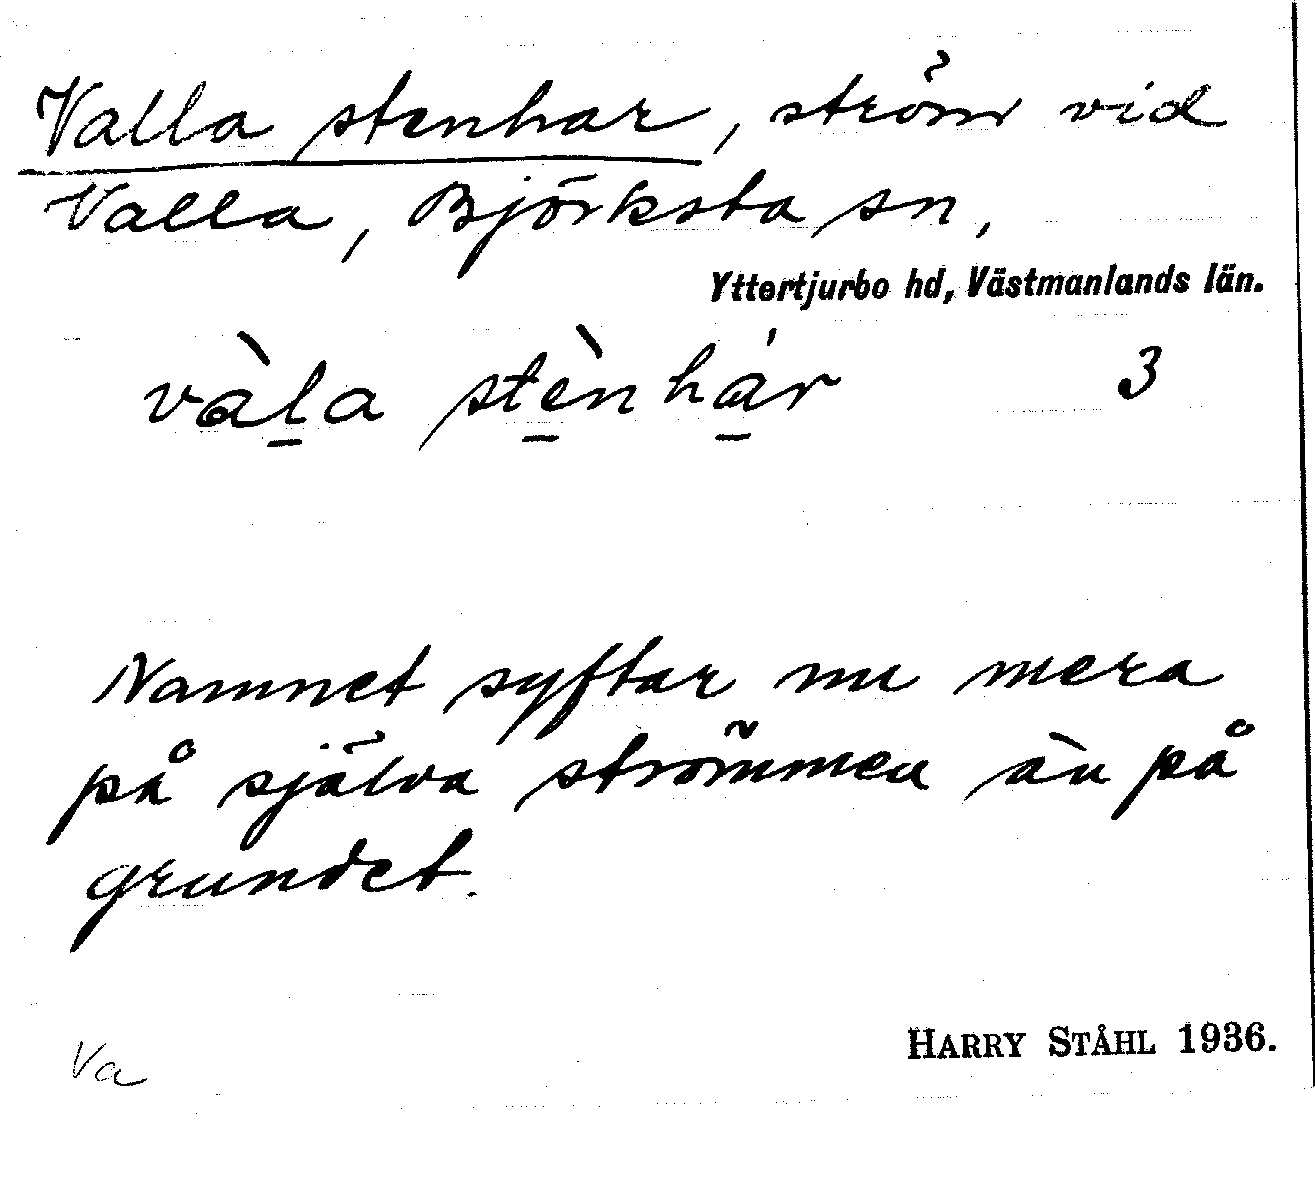 Valla stenhar, ström vid
Valla, Björksta sn,
Yttertjurbo hd, Västmanlands län.
vàl̲a stè̲nhá̲r 3
Namnet syftar nu mera
på själva strömmen än på
grundet.
Va
HARRY STÅHL 1936.